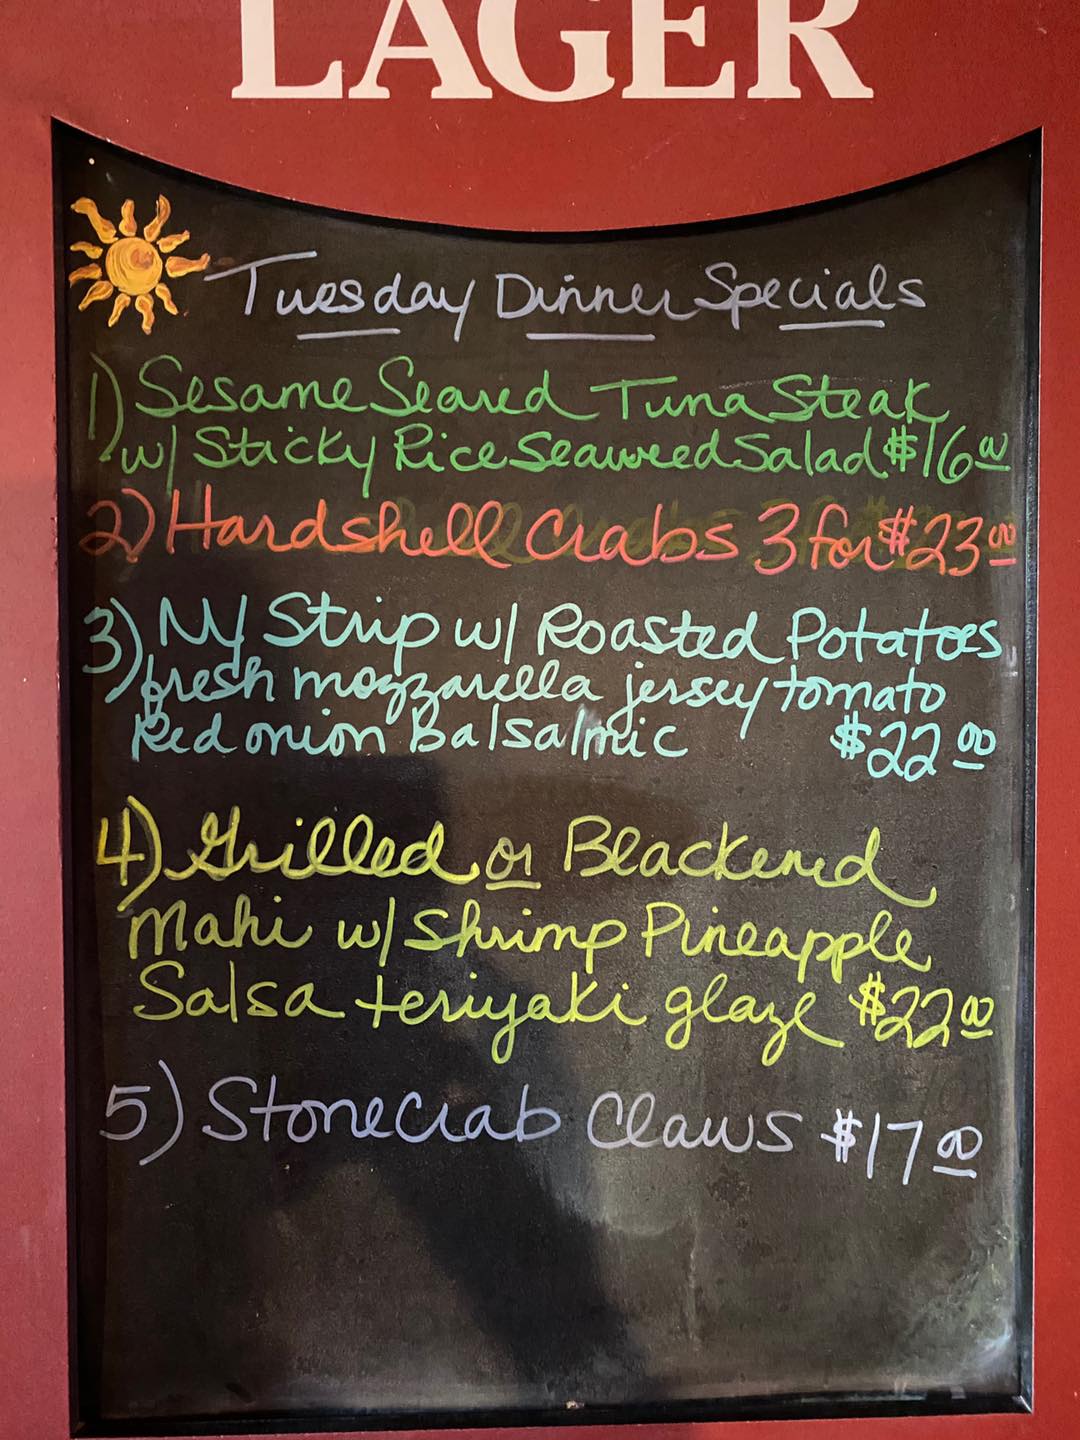 LAGER
Tuesday Dinner Specials
1) Sesame Seared Tuna Steak
w/ Sticky Rice Seaweed Salad $16.00
2) Hardshell Crabs 3 for $23.00
3) NY Strip w/ Roasted Potatoes
fresh mozzarella jersey tomato
Red onion Balsalmic $22.00
4) Grilled or Blackened
Mahi w/ Shrimp Pineapple
Salsa teriyaki glaze $22.00
5) Stonecrab Claws $17.00